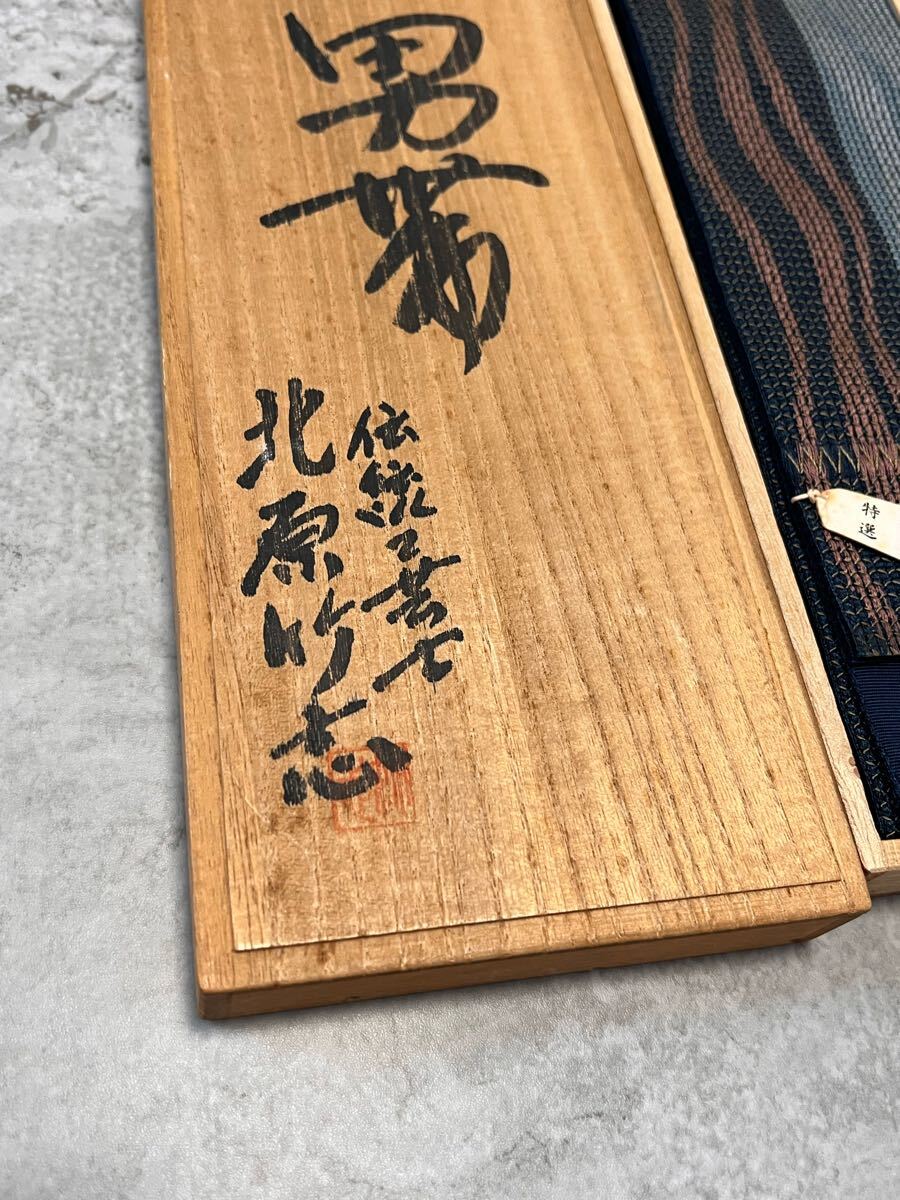 男帯
伝統工芸士
北原竹志
特選